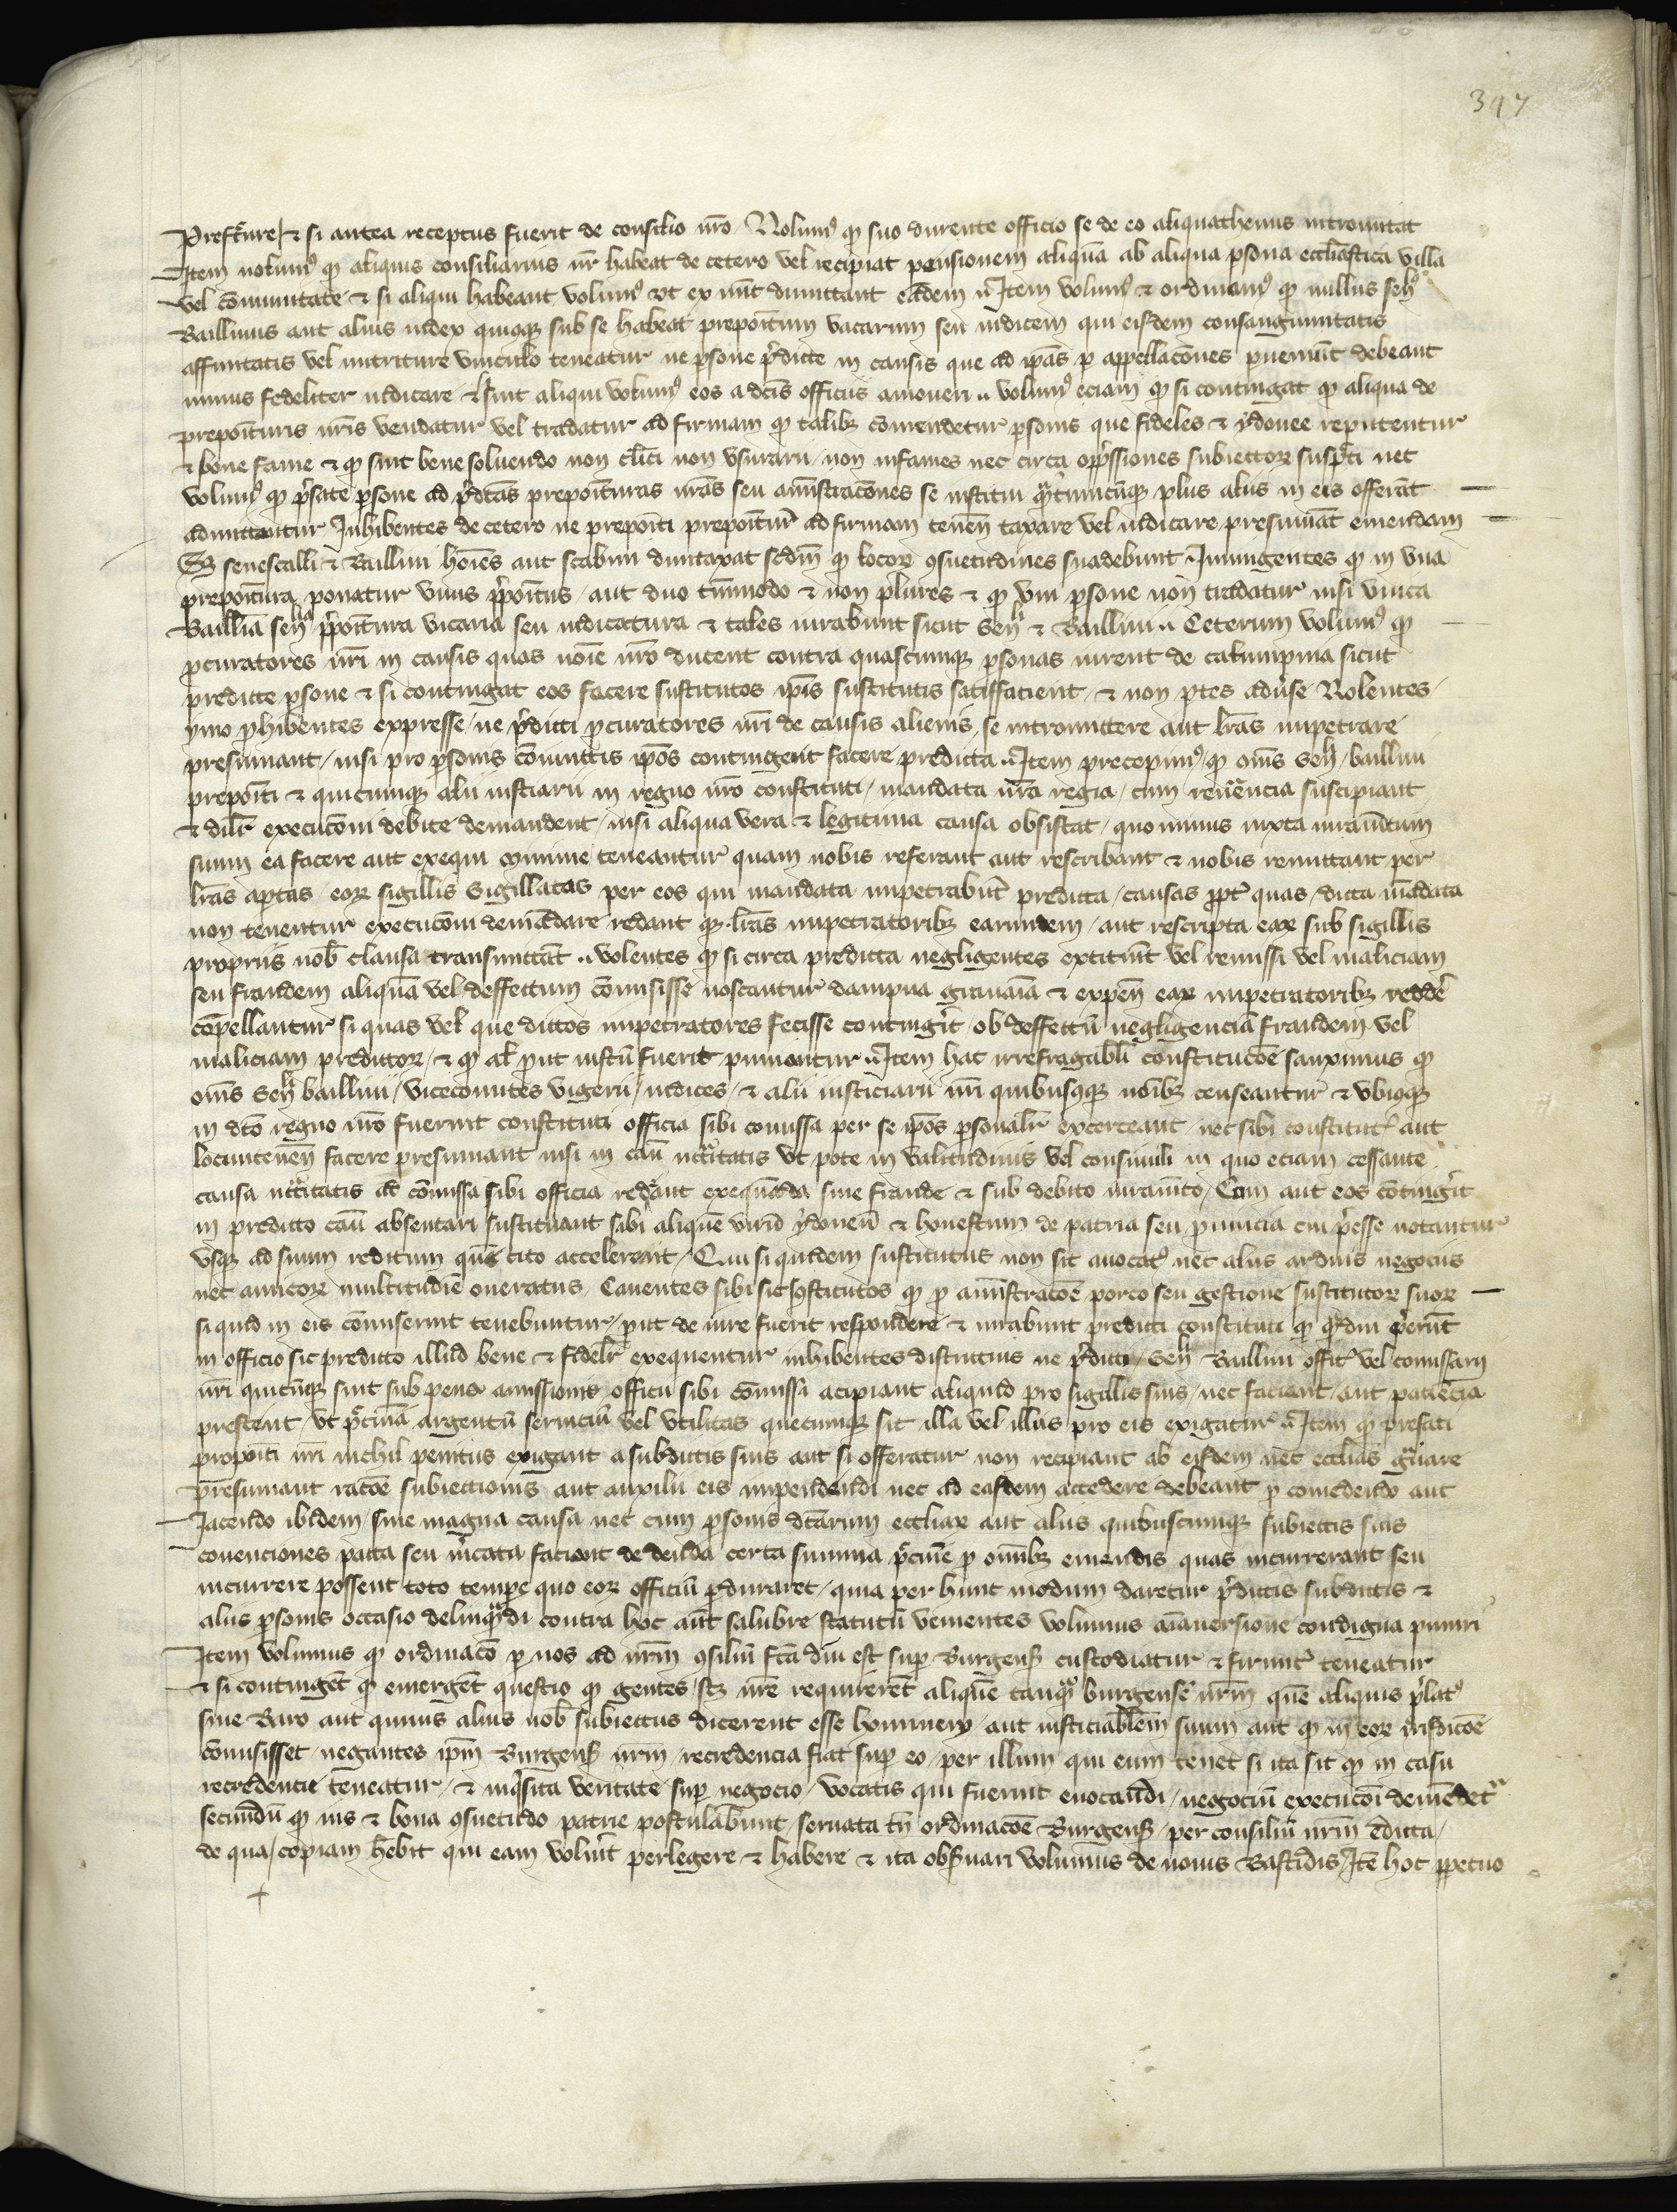 347
Prefcure & si antea receptus fuerit de consilio nro Nolumꝰ ꝙ suo durente officio se de eo aliquathenus intromittat
Item nolumꝰ ꝙ aliquis consiliarius nr̄ habeat de cetero vel recipiat pensionem aliquā ab aliqua ꝑsona ecclīastica villa
vel cōmunitate & si aliqui habeant volumꝰ vt ex nūc dimittant eādem Item volumꝰ & ordinamꝰ ꝙ nullus seƞ
Baillivus aut alius iudex quicq; sub se habeat prepoītum vacarium seu iudicem qui eisdem consanguinitatis
affinitatis vel nutriture vinculo teneatur ne ꝑsone p̄dicte in causis que ad ip̄as ꝑ appellacōnes ꝑveniūt debeant
minus fedeliter iudicare & sint aliqui volumꝰ eos a dc̄is officiis amoueri volumꝰ eciam ꝙ si contingat ꝙ aliqua de
prepoīturis nr̄is vendatur vel tradatur ad firmam ꝙ talib; cōmendetur ꝑsonis que fideles & ydonee reputentur
& bone fame & ꝙ sint bene soluendo non clīci non vsurarii non infames nec circa opp̄ssiones subiectoꝝ suspc̄ti nec
volumꝰ ꝙ p̄fate ꝑsone ad p̄dc̄as prepoīturas nrās seu amīstracōnes se institui q̄ntūcūq; plus aliis in eis offerāt
admittantur Inhibentes de cetero ne prepoīti prepoītur̄ ad firmam tenen̄ taxare vel iudicare presumāt emendam
Sꝫ senescalli & Baillivi hoīes aut scabini duntaxat scdm̄ ꝙ locoꝝ ꝯsuetudines suadebunt Iniungentes ꝙ in vna
prepoītura ponatur vnus p̄poītus aut duo tm̄modo & non plures & ꝙ vni ꝑsone non tradatur nisi vnica
Baillia senᵃ p̄poītura vicaria seu iudicatura & tales iurabunt sicut Seƞ & Baillivi Ceterum volumꝰ ꝙ
ꝓcuratores nrī in causis quas noīe nrō ducent contra quascumq; ꝑsonas iurent de calumpnia sicut
predicte ꝑsone & si contingat eos facere sustitutos ip̄is sustitutis satisfacient & non ꝑtes aduse Nolentes
ymo ꝓhibentes expresse ne p̄dicti ꝓcuratores nrī de causis alienis se intromittere aut lrās impetrare
presumant nisi pro ꝑsonis cōiunctis ip̄os contingerit facere predicta Item precepimꝰ ꝙ om̄s Seƞ baillivi
prepoīti & quicumq; alii iusticiarii in regno nrō constituti mandata nrā regia cum reu̓encia suscipiant
& dil̄r execucōni debite demandent nisi aliqua vera & legitima causa obsistat quominus iuxta iuramētum
suum ea facere aut exequi minime teneantur quam nobis referant aut rescribant & nobis remittant per
lrās aptas eoꝝ sigillis Sigillatas per eos qui mandata impetrabūt predicta causas ꝓpt̓ quas dicta mādata
non tenentur execucōni demādare redant q; lrās impetratorib; earumdem aut rescripta eaꝝ sub sigillis
propriis nob̄ clausa transmittāt volentes ꝙ si circa predicta negligentes extiterint vel remissi vel maliciam
seu fraudem aliquā vel deffectum cōmisisse noscantur dampna grauamīa & expen̄ eaꝝ impetratorib; redd̓e
cōpellantur si quas vel que dictos impetratores fecisse contingerit ob deffectū negligenciā fraudem vel
maliciam predictoꝝ & ꝙ al̄ ꝓut iustū fuerit puniantur Item hac irrefragabl̄i constitucōe sanximus ꝙ
om̄s Seƞ baillivi vicecomites vigerii iudices & alii iusticiarii nrī quibuscūq; nōib; censeantur & vbicq;
in dc̄o regno nrō fuerint constituti officia sibi cōmissa per se ip̄os ꝑsonalr̄ excerceant nec sibi constitut̓ aut
locumtenen̄ facere presumant nisi in cāu nc̄c̄itatis vt pote in valitudinis vel consimili in quo eciam cessante
causa nc̄c̄itatis ad cōmissa sibi officia redeant exequēda sine fraude & sub debito iuramēto Cum aut eos cōtingerit
in predicto cāu absentari sustituant sibi aliquē virū ydoneū & honestum de patria seu ꝓuincia cui p̄esse notantur
vsq; ad suum reditum quē cito accelerent Qui siquidem sustitutus non sit auocatꝰ nec aliis arduis negociis
nec amicoꝝ multitudīe oneratus Cauentes sibi sic sustitutos ꝙ ꝓ amīstracōe porro seu gestione sustitutoꝝ suoꝝ
si quid in eis cōmiserint tenebuntur ꝓut de iure fuerit respondere & iurabunt predicti constituti ꝙ q̄diu p̄erūt
in officio sic predicto illud bene & fidelr̄ exequentur inhibentes districtius ne p̄dicti Seƞ Baillivi offic̄ vel cōmissarii
nrī quicūq; sint sub pena amissionis officii sibi cōmissi acipiant aliquid pro sigillis suis nec faciant aut patiēcia
prestent vt p̄cīnia argentū seruiciū vel vtilitas quecumq; sit illa vel illas pro eis exigatur Item ꝙ prefati
prepoīti nrī nichil penitus exigant a subditis suis aut si offeratur non recipiant ab eisdem nec ecclīas g̓uare
presumant racōe subiectionis aut auxilii eis impendendi nec ad easdem accedere debeant ꝓ comedendo aut
Iacendo ibidem sine magna causa nec cum ꝑsonis dc̄arum ecclīaꝝ aut aliis quibuscumq; subiectis suis
cōuenciones pacta seu m̄cata faciant de danda certa summa p̄cunie ꝓ om̄ib; emendis quas incurrerant seu
incurrere possent toto tempe quo eoꝝ officiū ꝑduraret quia per hunc modum daretur p̄dictis subditis &
aliis ꝑsonis occasio delinq̄ndi contra hoc aut salubre statutū venientes volumus aīauersione condigna puniri
Item volumus ꝙ ordinacō ꝑ nos ad nrm̄ ꝯsiliū fc̄a diu est suꝑ Burgens̄ custodiatur & firmit̓ teneatur
& si contingerēt ꝙ emergerēt questio ꝙ gentes nrē requirerēt aliquē tanqᵃ burgensē nrm̄ quē aliquis p̄latꝰ
siue Baro aut quiuis alius nob̄ subiectus dicerent esse hominem aut iusticiabilem suum aut ꝙ in eoꝝ iurisdicōe
cōmisisset negantes ip̄m Burgens̄ nrm̄ recredencia fiat suꝑ eo per illum qui eum tenet si ita sit ꝙ in casu
recredencie teneatur & inq̓sita veritate suꝑ negocio vocatis qui fuerint euocandi negociū execucōi demēdetur
secundū ꝙ ius & bona ꝯsuetudo patrie postulabunt seruata tn̄ ordinacōe Burgens̄ per consiliū nrm̄ edicta
de qua copiam hēbit qui eam voluerit perlegere & habere & ita obs̓uari volumus de nouis Bastidis Itē hoc ꝑpetuo